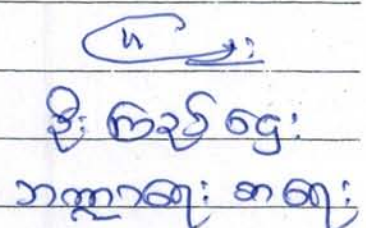 ဦး ကြည် ဌေး
ဘဏ္ဍာရေး စာရေး